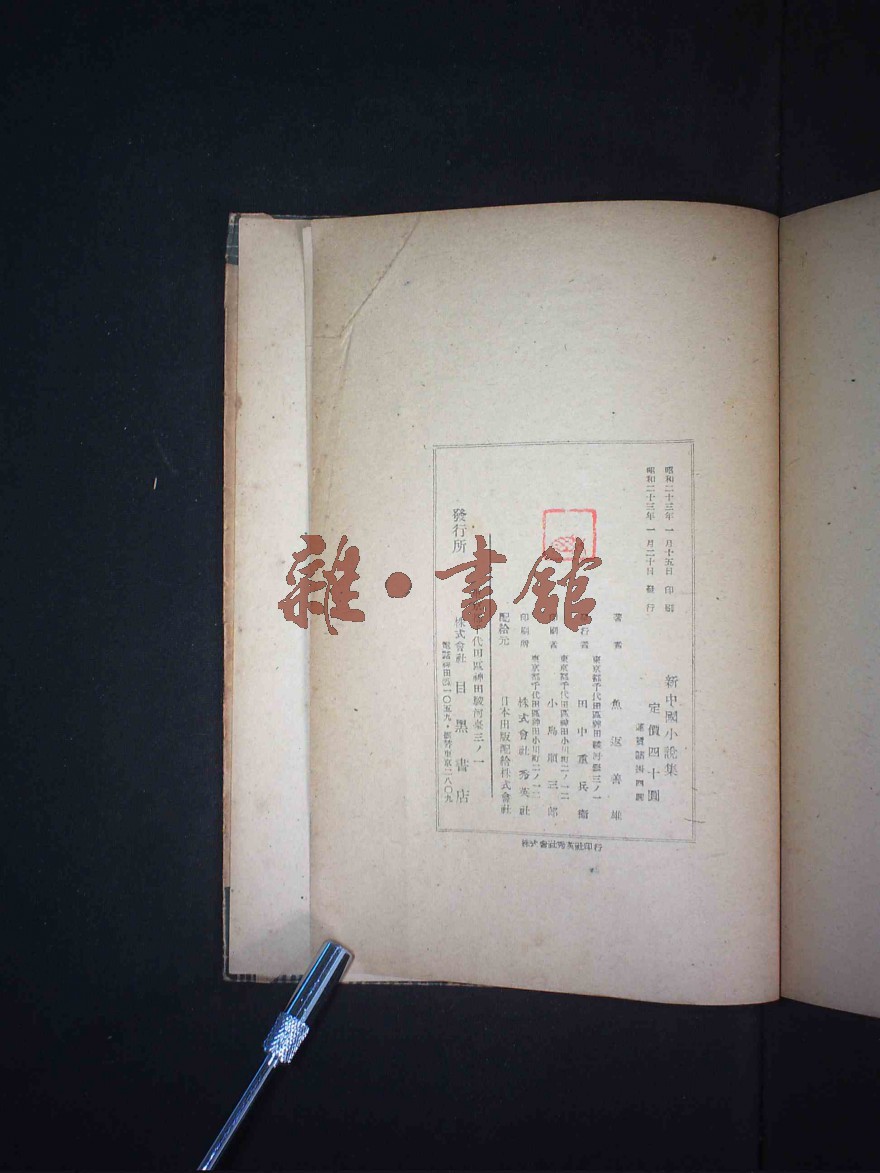 昭和二十三年 一月十五日 印刷
昭和二十三年 一月二十日 發行
新中國小說集
定價四十圓
著者 魚返善雄
東京都千代田區神田駿河臺三ノ一
行者 田中重兵衞
東京都千代田區神田小川町二ノ一二
印刷者 小島順三郎
東京都千代田區神田小川町二ノ一二
印刷所 株式會社 秀英社
配給元 日本出版配給株式會社
代田區神田駿河臺三ノ一
發行所 株式會社 目黑書店
株式會社秀英社印行
雜·書館